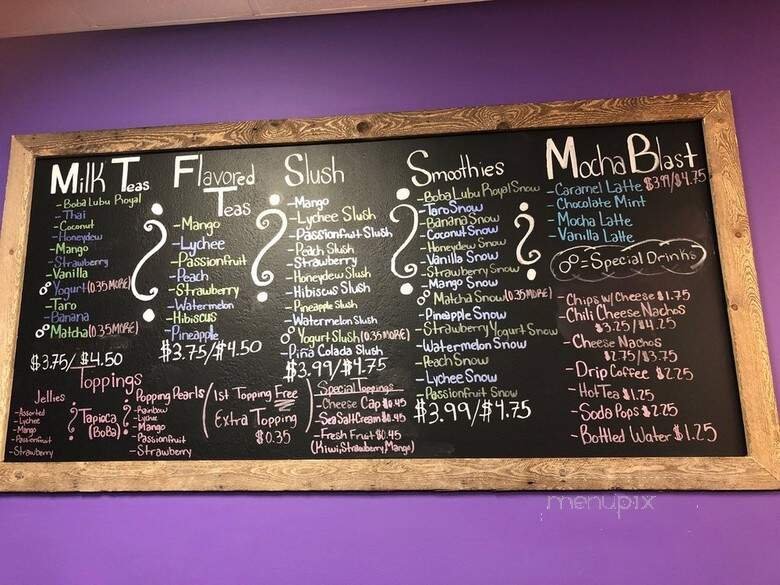 Milk Teas
-Boba Lubu Royal
-Thai
-Coconut
-Honeydew
-Mango
-Strawberry
-Vanilla
Yogurt (0.35 MORE)
-Taro
-Banana
Matcha (0.35 MORE)
$3.75/$4.50
Flavored
Teas
-Mango
-Lychee
-Passionfruit
-Peach
-Strawberry
-Watermelon
-Hibiscus
-Pineapple
$3.75/$4.50
Slush
-Mango
-Lychee Slush
-Passionfruit Slush
-Peach Slush
-Strawberry
-Honeydew Slush
-Hibiscus Slush
-Pineapple Slush
-Watermelon Slush
Yogurt Slush (0.35 MORE)
-Piña Colada Slush
$3.99/$4.75
Smoothies
-Boba Lubu Royal Snow
-Taro Snow
-Banana Snow
-Coconut Snow
-Honeydew Snow
-Vanilla Snow
-Strawberry Snow
-Mango Snow
Matcha Snow (0.35 MORE)
-Pineapple Snow
-Strawberry Yogurt Snow
-Watermelon Snow
-Peach Snow
-Lychee Snow
-Passionfruit Snow
$3.99/$4.75
Mocha Blast
-Caramel Latte $3.99/$4.75
-Chocolate Mint
-Mocha Latte
-Vanilla Latte
=Special Drinks
-Chips w/ Cheese $1.75
-Chili Cheese Nachos
$3.25/$4.25
-Cheese Nachos
$2.75/$3.75
-Drip Coffee $2.25
-Hot Tea $1.25
-Soda Pops $2.25
-Bottled Water $1.25
Toppings
Jellies
-Assorted
-Lychee
-Mango
-Passionfruit
-Strawberry
Tapioca
(Boba)
Popping Pearls
-Rainbow
-Lychee
-Mango
-Passionfruit
-Strawberry
1st Topping Free
Extra Topping
$0.35
Special Toppings
-Cheese Cap $0.45
-Sea Salt Cream $0.45
-Fresh Fruit $0.45
(Kiwi, Strawberry, Mango)
menupix